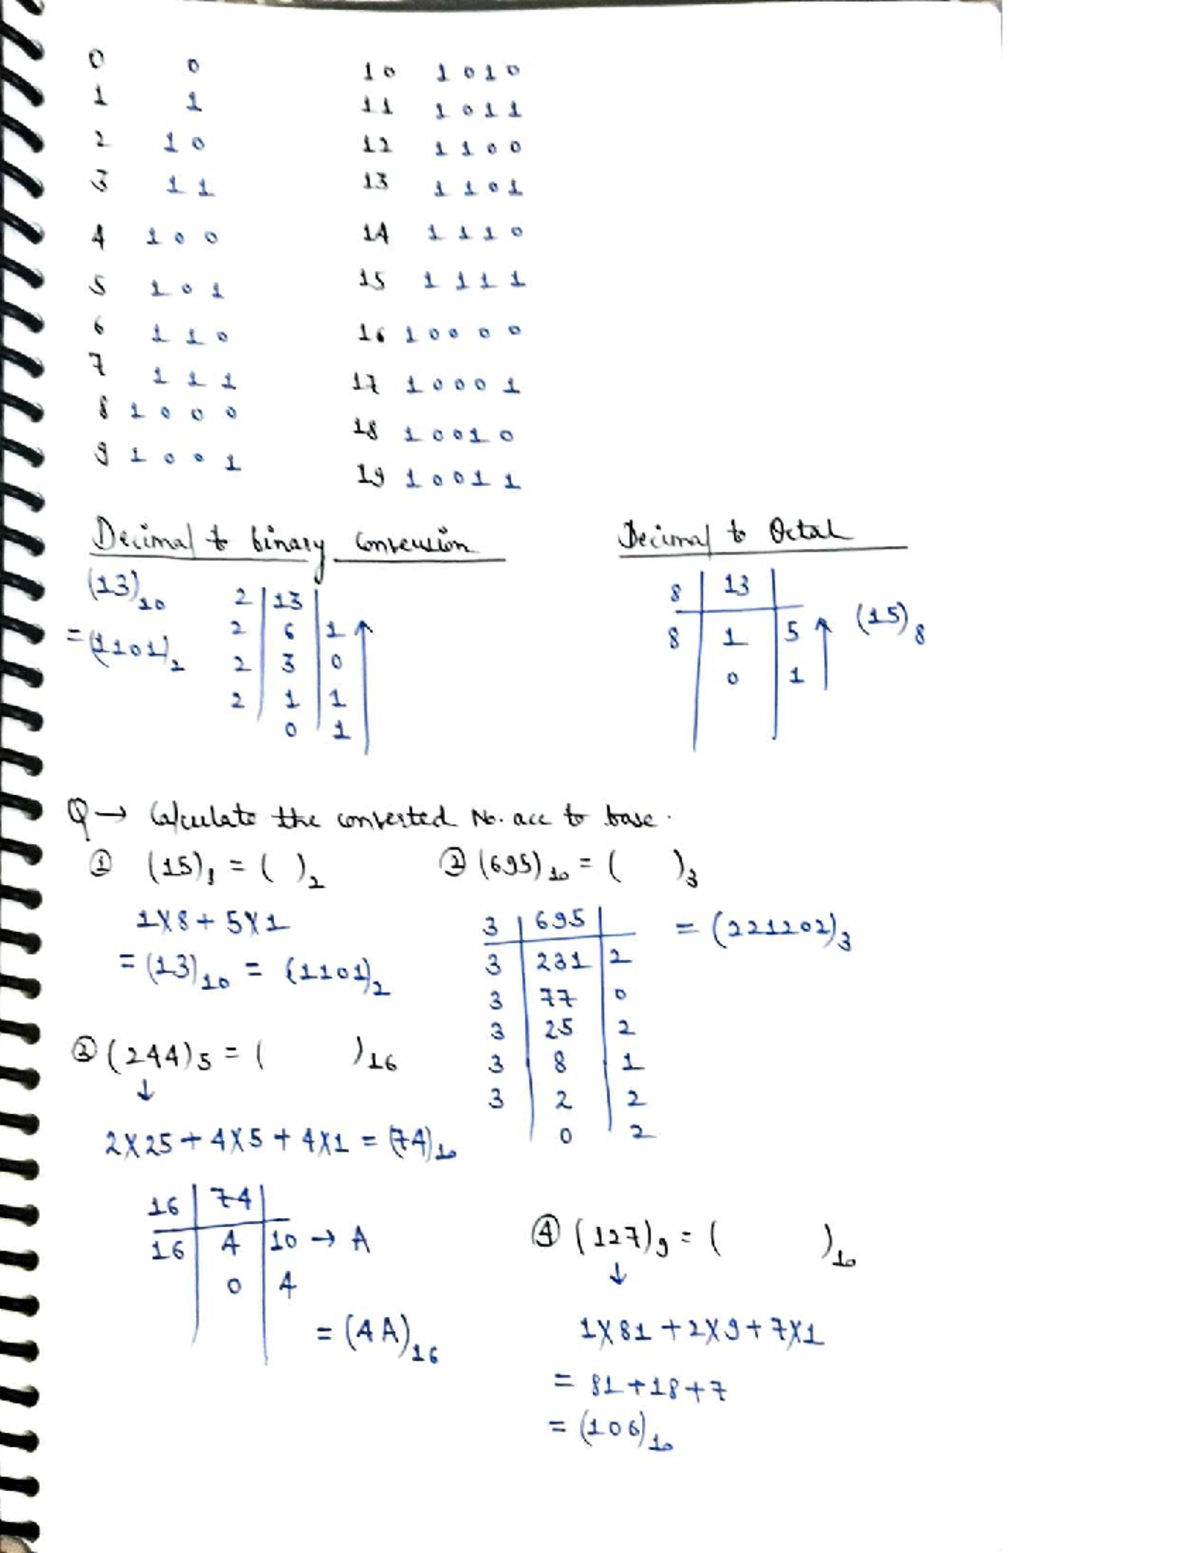 0 0 10 1010
1 1 11 1011
2 10 12 1100
3 11 13 1101
4 100 14 1110
5 101 15 1111
6 110 16 10000
7 111 17 10001
8 1000 18 10010
9 1001 19 10011
Decimal to binary conversion
(13)₁₀
= (1101)₂
2 | 13 |
2 | 6 | 1
2 | 3 | 0
2 | 1 | 1
0 | 1
Decimal to Octal
8 | 13 |
8 | 1 | 5
0 | 1
(15)₈
Q → Calculate the converted No. acc to base.
① (15)₈ = ( )₂
1X8 + 5X1
= (13)₁₀ = (1101)₂
② (695)₁₀ = ( )₃
3 | 695 |
3 | 231 | 2
3 | 77 | 0
3 | 25 | 2
3 | 8 | 1
3 | 2 | 2
0 | 2
= (221202)₃
③ (244)₅ = ( )₁₆
↓
2X25 + 4X5 + 4X1 = (74)₁₀
16 | 74 |
16 | 4 | 10 → A
0 | 4
= (4A)₁₆
④ (127)₉ = ( )₁₀
↓
1X81 + 2X9 + 7X1
= 81 + 18 + 7
= (106)₁₀